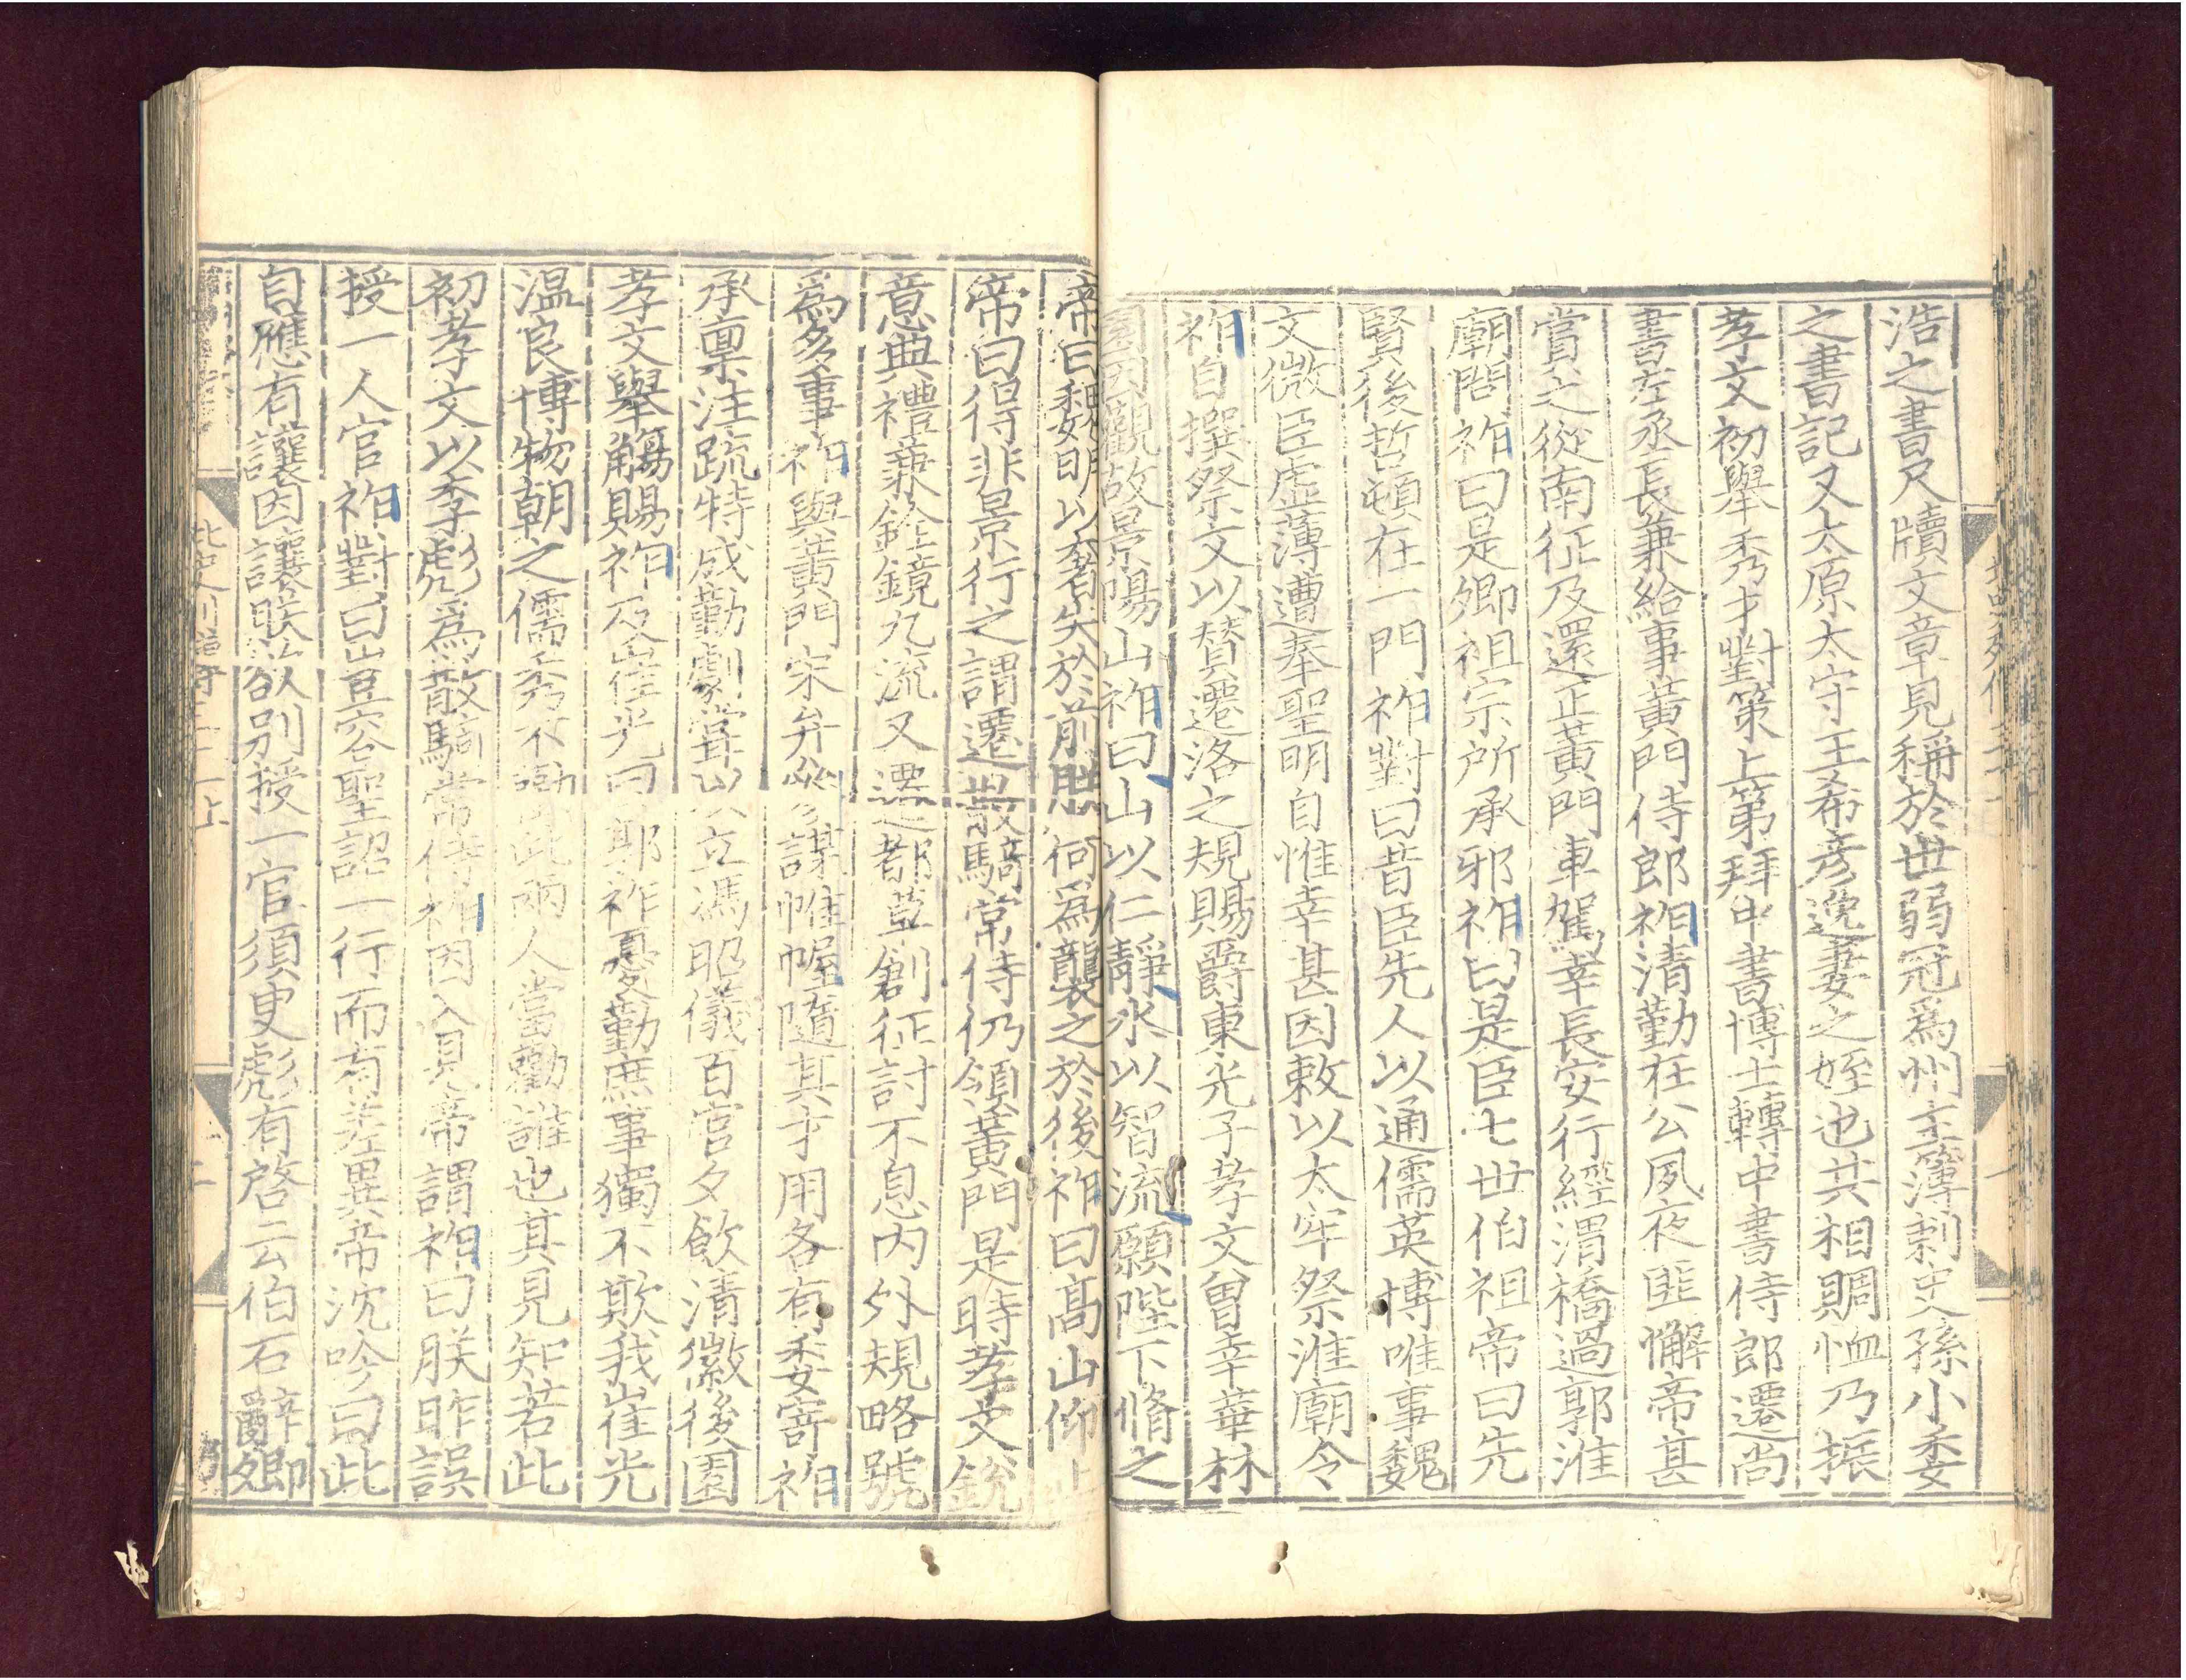 浩之書尺牘文章見稱於世弱冠爲州主簿刺史孫小委
之書記又太原太守王希彦逸妻之姪也共相賙恤乃振
孝文初舉秀才對策上第拜中書博士轉中書侍郎遷尚
書左丞長兼給事黃門侍郎祚清勤在公夙夜匪懈帝甚
賞之從南征及還正黃門車駕幸長安行經渭橋過郭淮
廟問祚曰是卿祖宗所承邪祚曰是臣七世伯祖帝曰先
賢後哲頓在一門祚對曰昔臣先人以通儒英博唯事魏
文微臣虛薄遭奉聖明自惟幸甚因敕以太牢祭淮廟令
祚自撰祭文以賛遷洛之規賜爵東光子孝文曾幸華林
園因觀故景陽山祚曰山以仁靜水以智流願陛下脩之
帝曰魏明以奢失於前朕何爲襲之於後祚曰高山仰止
帝曰得非景行之謂遷散騎常侍仍領黃門是時孝文銳
意典禮兼銓鏡九流又遷都草創征討不息内外規略號
爲多事祚與黃門宋弁參謀帷幄隨其才用各有委寄祚
承稟注疏特成勤劇嘗以立馮昭儀百官夕飲清徽後園
孝文舉觴賜祚及崔光曰郭祚憂勤庶事獨不欺我崔光
溫良博物朝之儒秀不勸此兩人當勸誰也其見知若此
初孝文以李彪爲散騎常侍祚因入見帝謂祚曰朕昨誤
授一人官祚對曰豈容聖詔一行而有差異帝沈吟曰此
自應有讓因讓朕欲別授一官須臾彪有啓云伯石辭卿